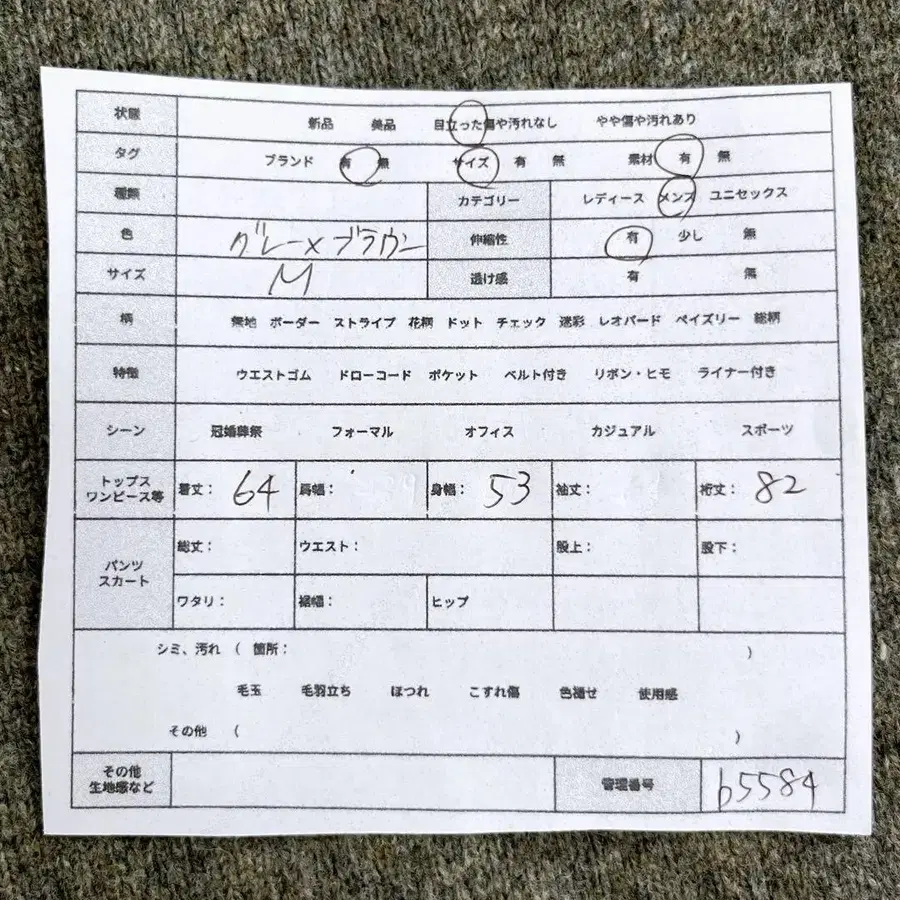 状態 新品 美品 目立った傷や汚れなし やや傷や汚れあり
タグ ブランド 有 無 サイズ 有 無 素材 有 無
種類 カテゴリー レディース メンズ ユニセックス
色 グレー×ブラウン 伸縮性 有 少し 無
サイズ M 透け感 有 無
柄 無地 ボーダー ストライプ 花柄 ドット チェック 迷彩 レオパード ペイズリー 総柄
特徴 ウエストゴム ドローコード ポケット ベルト付き リボン・ヒモ ライナー付き
シーン 冠婚葬祭 フォーマル オフィス カジュアル スポーツ
トップス
ワンピース等 着丈: 64 肩幅: 身幅: 53 袖丈: 裄丈: 82
パンツ
スカート 総丈: ウエスト: 股上: 股下:
ワタリ: 裾幅: ヒップ
シミ、汚れ ( 箇所: )
毛玉 毛羽立ち ほつれ こすれ傷 色褪せ 使用感
その他 ( )
その他
生地感など 管理番号 b5584